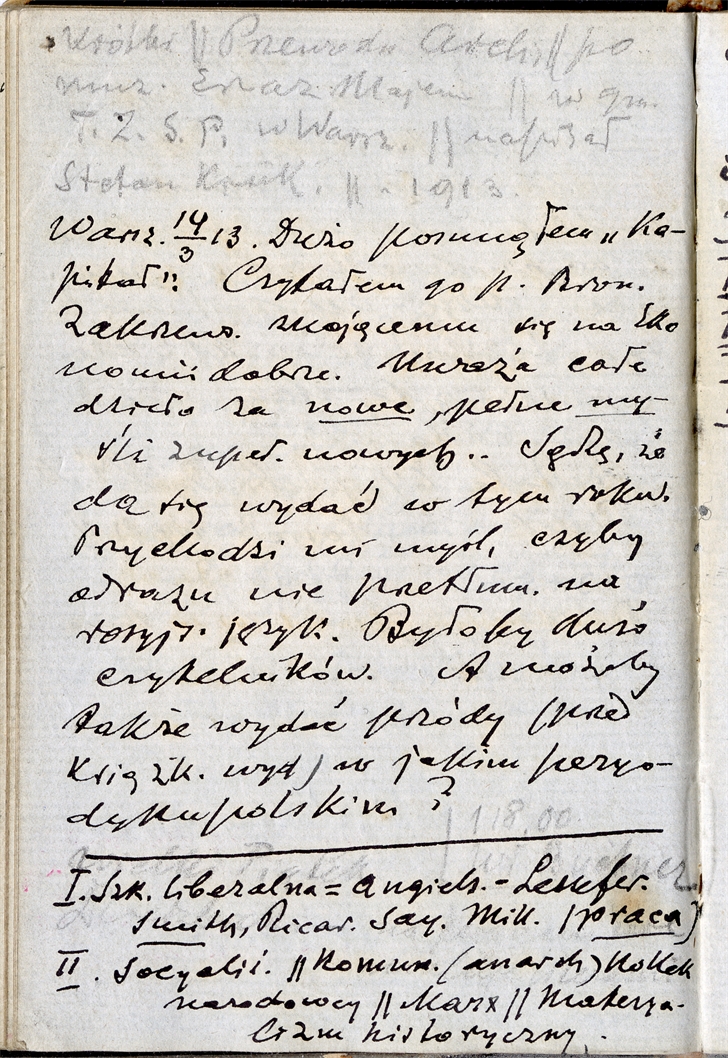 Krótki || Przewodn Arch. || po
muz. Eraz. Majew || w gm.
T. Z. S. P. w Warsz. || napisał
Stefan Kruk. || - 1913.
Warsz. 14/3 13. Dużo posunąłem „Ka-
pitał”. Czytałem go p. Bron.
Zakrzews. znającemu się na Eko
nomii dobrze. Uważa całe
dzieło za nowe, pełne my-
śli zupeł. nowych.. Sądzę, że
da się wydać w tym roku.
Przychodzi mi myśl, czyby
odrazu nie przetłum. na
rosyjs. język. Byłoby dużo
czytelników. A możeby
także wydać przódy (przed
książk. wyd) w jakim peryo-
dyku polskim?
118,00
I. Szk. liberalna = angiels. - Lessefer.
Smith, Ricar. Say. Mill. (praca)
II. Socyaliś. || Komun. (anarch) Kollek
narodowcy || Marx || Materya-
lizm historyczny.